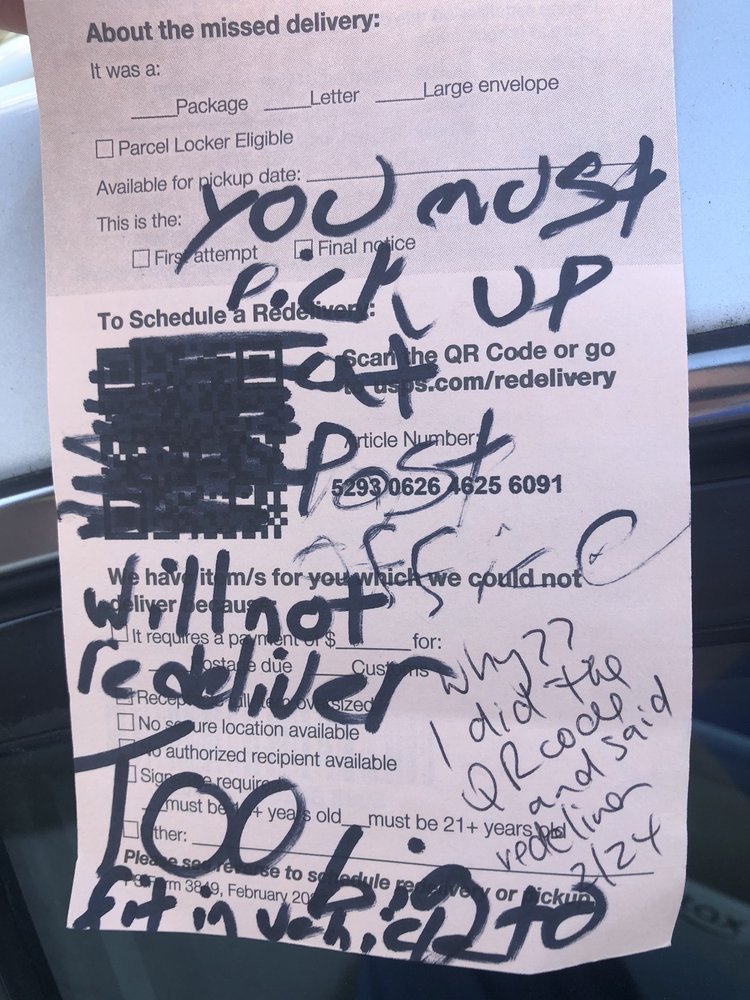 About the missed delivery:
It was a:
____Package ____Letter ____Large envelope
Parcel Locker Eligible
Available for pickup date:
This is the:
First attempt Final notice
YOU must
pick UP
at
Post
office
will not
redeliver
TOO big to
fit in vehicle
To Schedule a Redelivery:
Scan the QR Code or go
to usps.com/redelivery
Article Number:
5293 0626 4625 6091
We have item/s for you which we could not
deliver because
It requires a payment of $______ for:
Postage due ____Customs
No secure location available
No authorized recipient available
Signature required
must be 18+ years old ___must be 21+ years old
Other:
Please see reverse to schedule redelivery or pickup
PS Form 3849, February
Why??
I did the
QR code
and said
redeliver
2/24